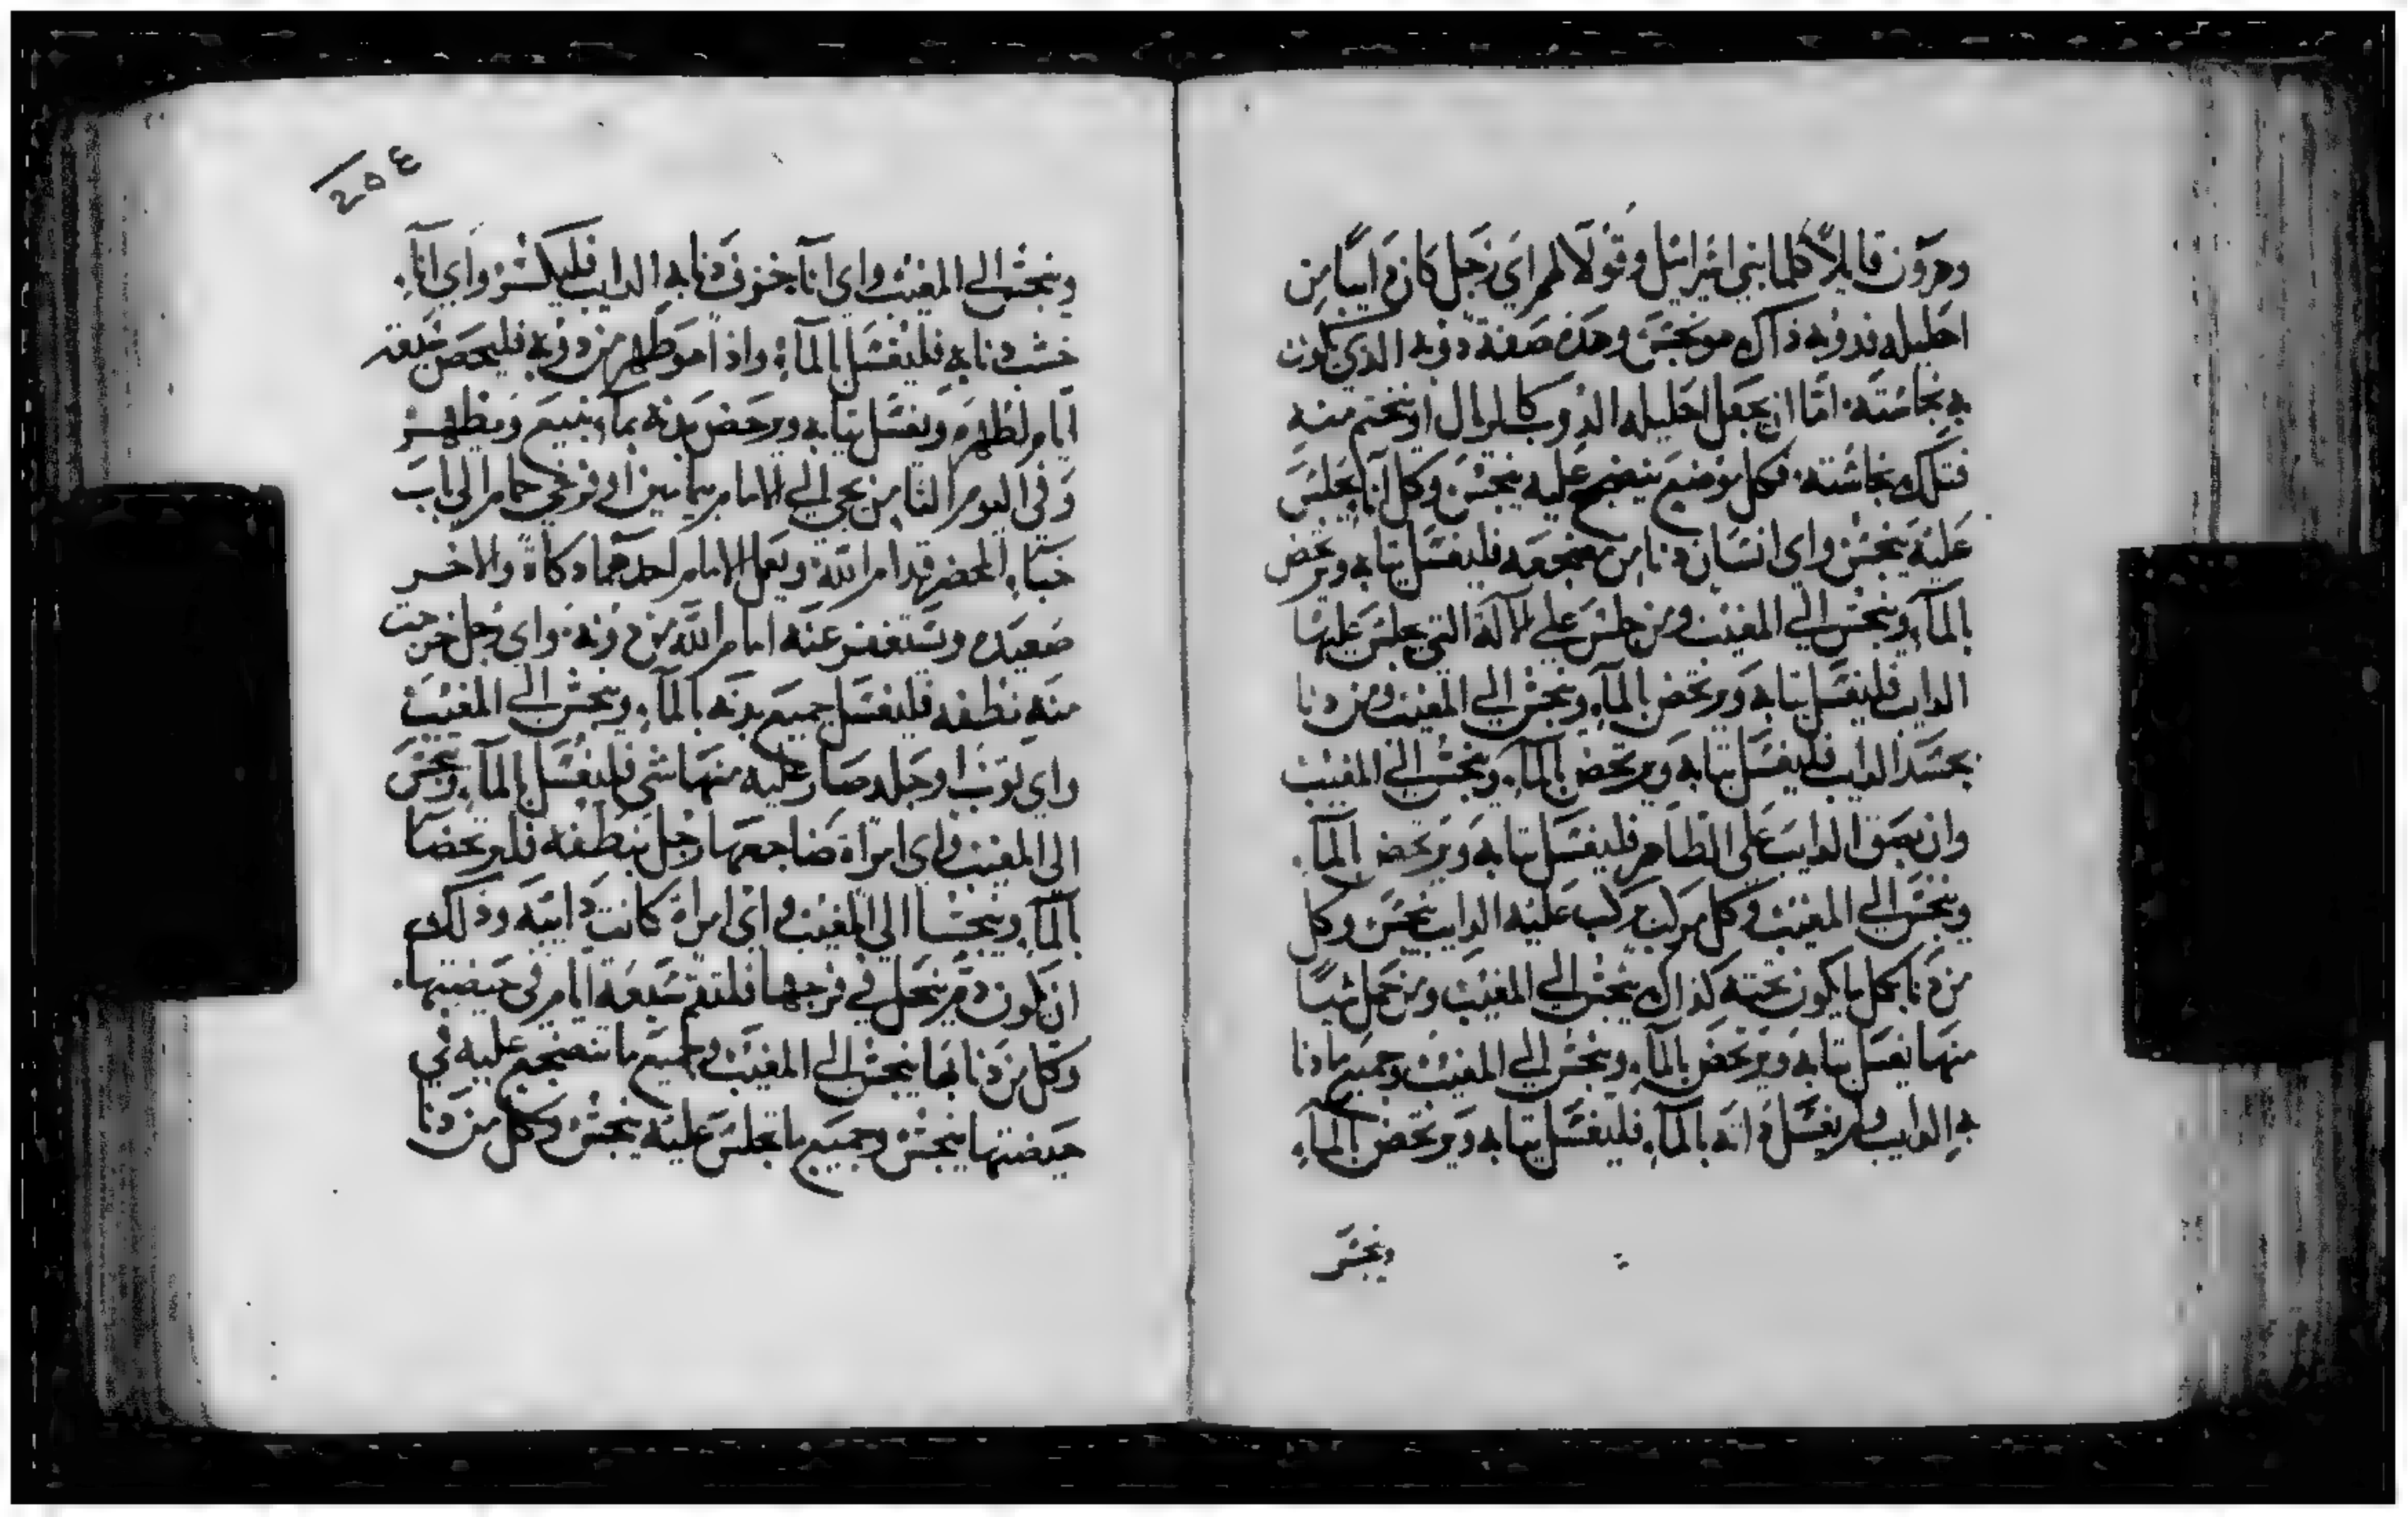 وهرون قايلاً كلما بني اسرائيل وقولا لهم اي رجل كان دايبًا من
احليله فدوبه ذاك هو نجس وهذه صفة دوبه الذي يكون
به نجاسته اما ان يجعل احليله الدوب كالريال او ينختم منه
فتلك نجاسته فكل موضع ينضجع عليه ينجس وكل انا يجلس
عليه ينجس واي انسان دنا من مضجعه فليغسل ثيابه ويرتحض
بالمآء وينجس الي المغيب ومن جلس علي الآلة التي يجلس عليها
الدايب فليغسل ثيابه ويرتحض بالمآء وينجس الي المغيب ومن دنا
بجسد الدايب فليغسل ثيابه ويرتحض بالمآء وينجس الي المغيب
وان بصق الدايب على الطاهر فليغسل ثيابه ويرتحض بالمآء
وينجس الي المغيب وكل مركب يركب عليه الدايب ينجس وكل
من دنا بكل ما يكون تحته كذاك ينجس الي المغيب ومن حمل شياً
منها يغسل ثيابه ويرتحض بالمآء وينجس الي المغيب وجميع ما دنا
به الدايب ولم يغسل ذاته بالمآء فليغسل ثيابه ويرتحض بالمآء
وينجس
٢٥٤
وينجس الي المغيب واي انآ خزف دنا به الدايب فليكسر واي انآء
خشب دنا به فليغسل بالمآء واذا هو طهر من دوبه فليحص سبعة
ايام لطهره ويغسل ثيابه ويرحض بدنه بمآء ينبيع ويطهر
وفي اليوم الثامن يجي الي الامام بيمامين او فرخي حمام الى باب
خبآء المحضر قدام الله ويعمل الامام احدهما دكاة والاخر
صعيده ويستغفر عنه امام الله من دوبه واي رجل خرجت
منه نطفه فليغسل جميع بدنه بالمآء وينجس الي المغيب
واي ثوب او جلد صار عليه منها شي فليغسل بالمآء وينجس
الى المغيب واي امراة ضاجعها رجل بنطفه فليرتحضا
بالمآء وينجسا الي المغيب واي امراة كانت دايبه وذلك
ان يكون دم ينحل في فرجها فلتقم سبعة ايام في حيضتها
وكل من دنا بها ينجس الي المغيب وجميع ما تنضجع عليه في
حيضتها ينجس وجميع ما تجلس عليه ينجس وكل من دنا